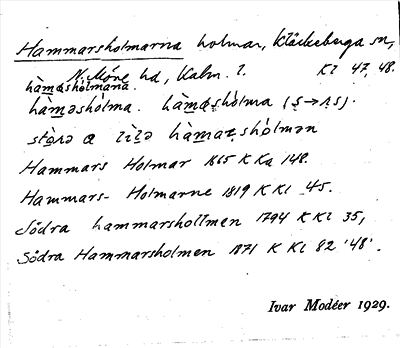 Hammarsholmarna holmar, Kläckeberga sn,
N. Möre hd, Kalm. l. Kl 47, 48.
hàmasholmana.
hàməshòlma. hàmaʂhòlma (ʂ→rs).
stòrə a lìlə hàmaʂhòlmən
Hammars Holmar 1865 K Ka 148.
Hammars- Holmarne 1819 K Kl 45.
Södra hammarshollmen 1794 K Kl 35,
Södra Hammarsholmen 1871 K Kl 82 '48'.
Ivar Modéer 1929.